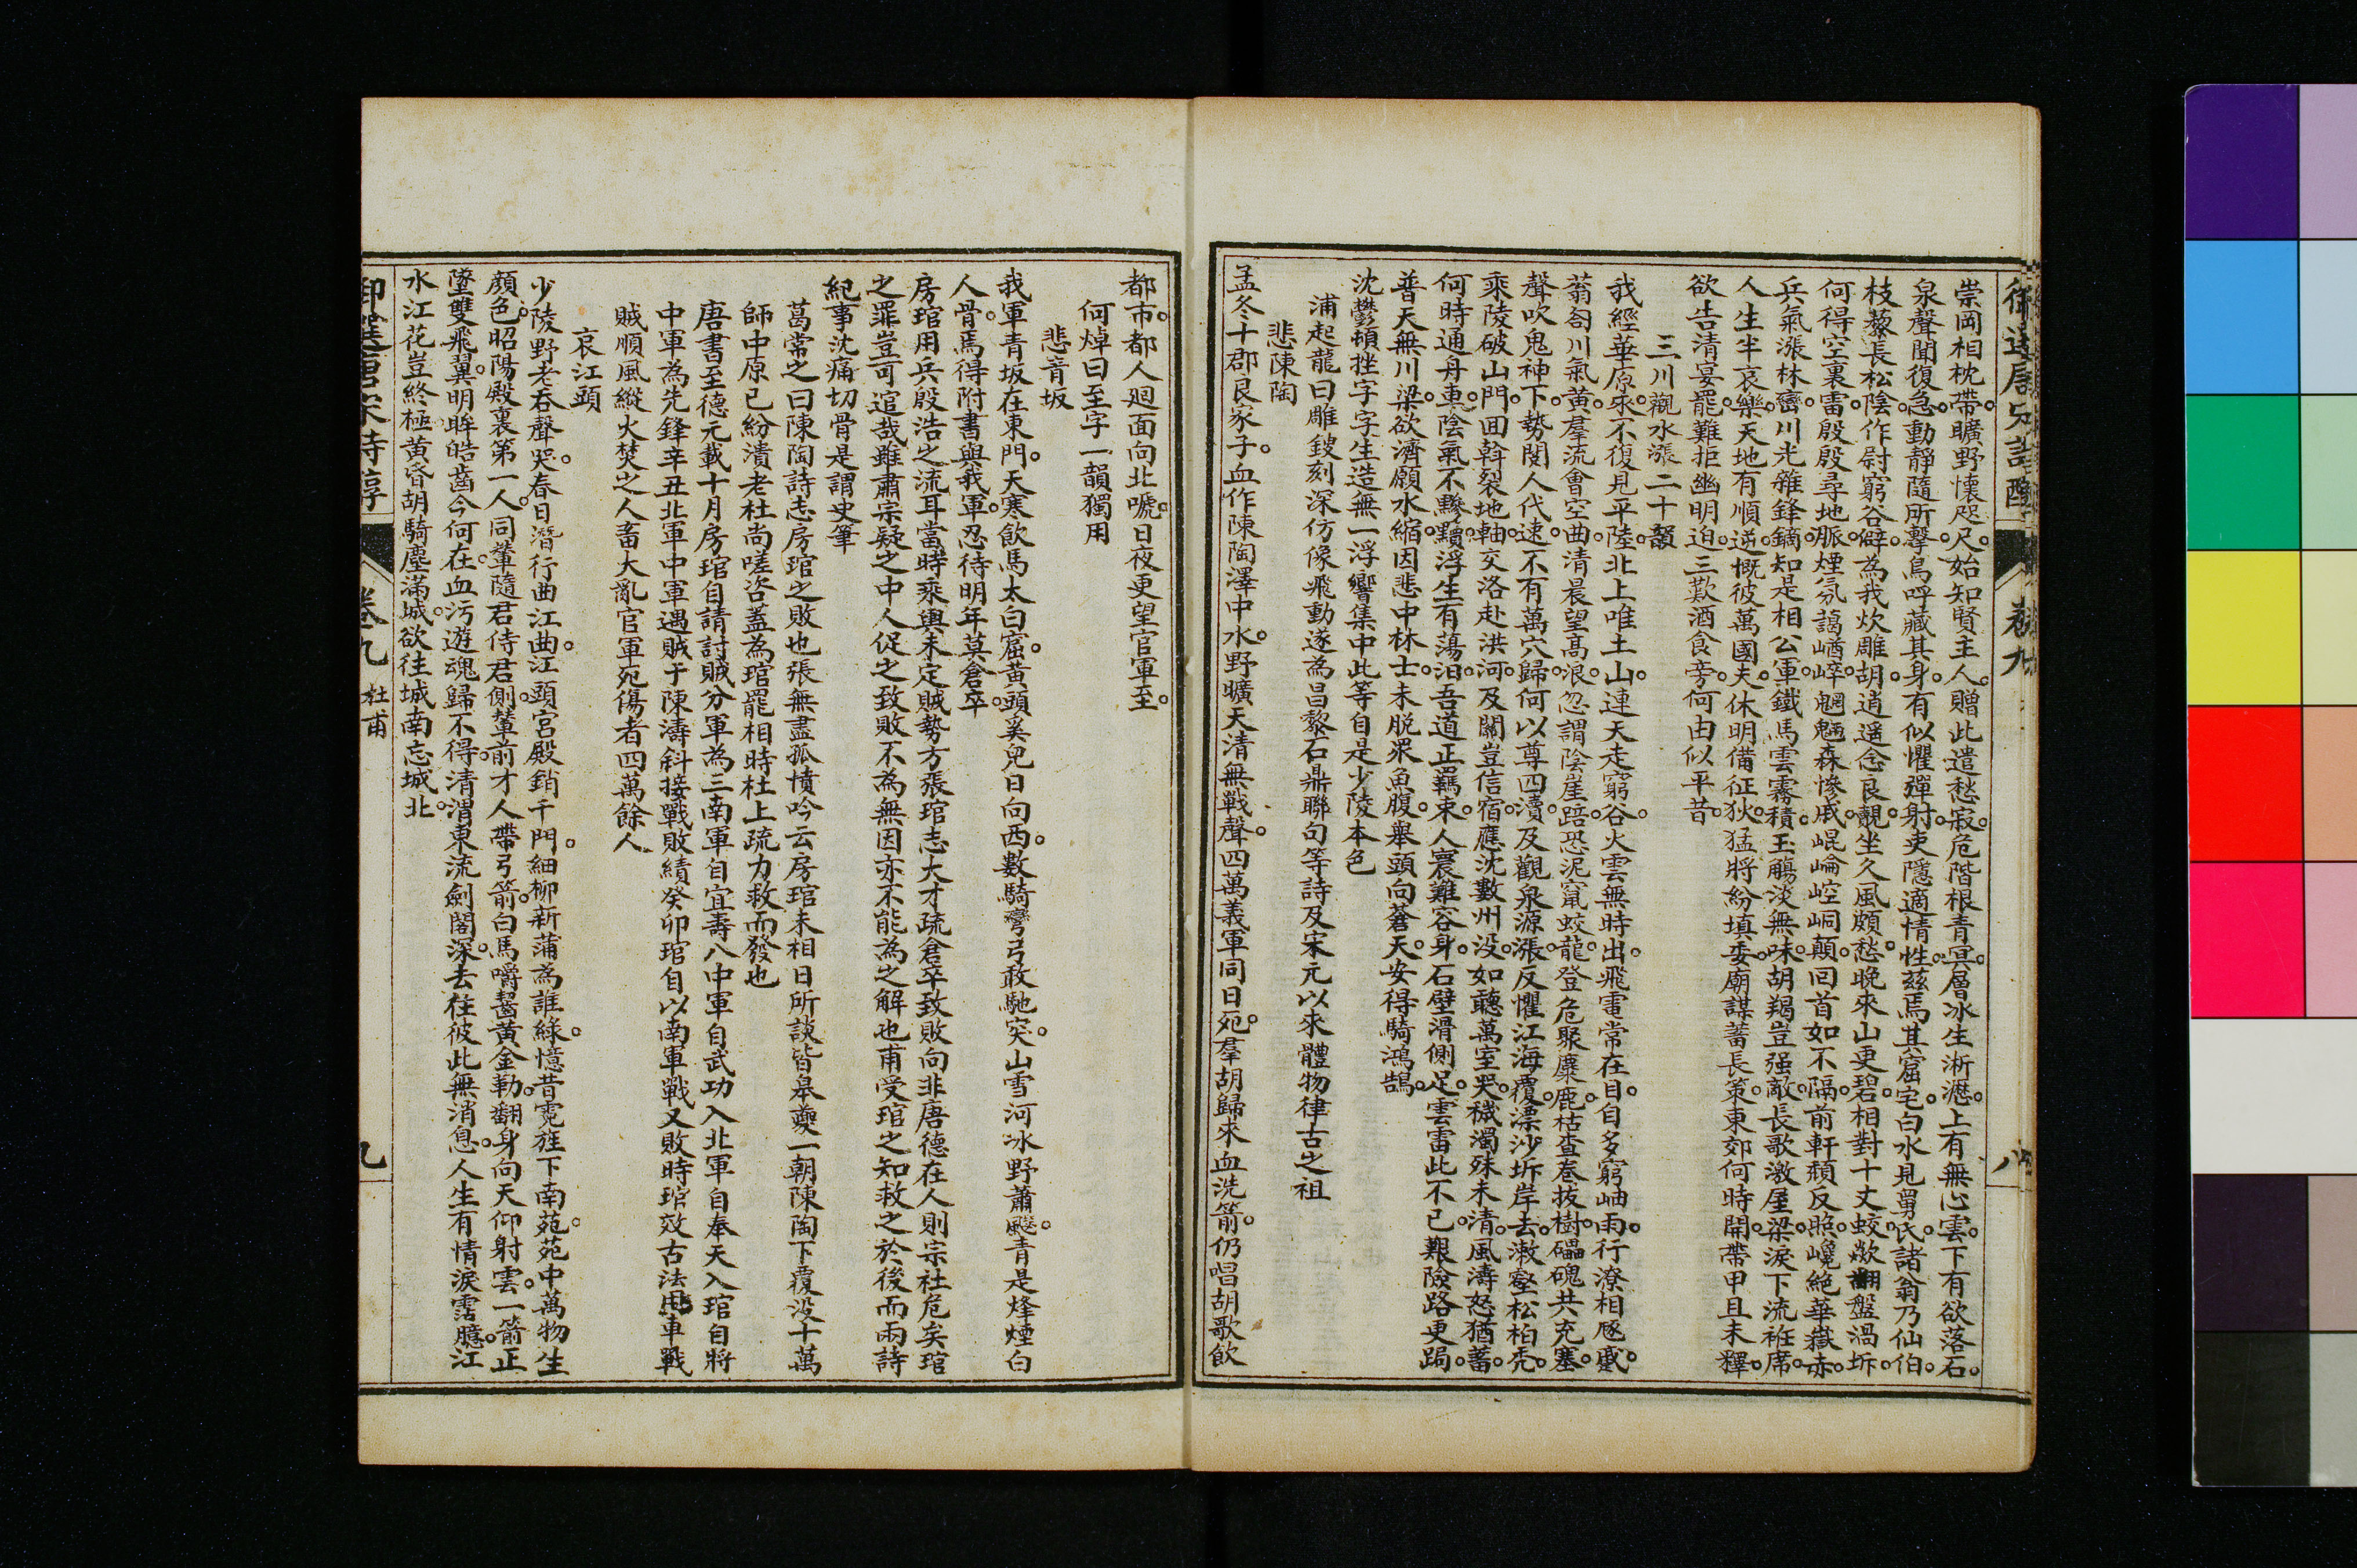 崇岡相枕帶曠野懷咫尺始知賢主人贈此遣愁寂危階根青冥層冰生淅瀝上有無心雲下有欲落石
泉聲聞復急動靜隨所擊鳥呼藏其身有似懼彈射吏隱適情性茲焉其窟宅白水見舅氏諸翁乃仙伯
枝藜長松陰作尉窮谷僻為我炊雕胡逍遥念良覿坐久風頗愁晚來山更碧相對十丈蛟欻翻盤渦坼
何得空裏雷殷殷尋地脈煙氛藹崷崒魍魎森慘戚崐崘崆峒顛回首如不隔前軒頽反照巉絶華嶽赤
兵氣漲林巒川光雜鋒鏑知是相公軍鐵馬雲霧積玉觴淡無味胡羯豈强敵長歌激屋梁淚下流袵席
人生半哀樂天地有順逆慨彼萬國夫休明備征狄猛將紛填委廟謀蓄長策東郊何時開帶甲且未釋
欲告清宴罷難拒幽明迫三歎酒食旁何由似平昔
三川觀水漲二十韻
我經華原來不復見平陸北上唯土山連天走窮谷火雲無時出飛電常在目自多窮岫雨行潦相豗蹙
蓊匌川氣黄羣流會空曲清晨望高浪忽謂陰崖踣恐泥竄蛟龍登危聚麋鹿枯查卷拔樹礧磈共充塞
聲吹鬼神下勢閱人代速不有萬穴歸何以尊四瀆及觀泉源漲反懼江海覆漂沙坼岸去漱壑松柏秃
乘陵破山門回斡裂地軸交洛赴洪河及關豈信宿應沈數州没如聽萬室哭穢濁殊未清風濤怒猶蓄
何時通舟車陰氣不黲黷浮生有蕩汩吾道正羈束人寰難容身石壁滑側足雲雷此不已艱險路更跼
普天無川梁欲濟願水縮因悲中林士未脱衆魚腹舉頭向蒼天安得騎鴻鵠
沈鬱頓挫字字生造無一浮響集中此等自是少陵本色
浦起龍曰雕鎪刻深仿像飛動遂為昌黎石鼎聯句等詩及宋元以來體物律古之祖
悲陳陶
孟冬十郡良家子血作陳陶澤中水野曠天清無戰聲四萬義軍同日死羣胡歸來血洗箭仍唱胡歌飲
卷九
八
都市都人廻面向北嗁日夜更望官軍至
何焯曰至字一韻獨用
悲青坂
我軍青坂在東門天寒飲馬太白窟黄頭奚兒日向西數騎彎弓敢馳突山雪河冰野蕭颼青是烽煙白
人骨焉得附書與我軍忍待明年莫倉卒
房琯用兵殷浩之流耳當時乘輿未定賊勢方張琯志大才疏倉卒致敗向非唐德在人則宗社危矣琯
之罪豈可逭哉雖肅宗疑之中人促之致敗不為無因亦不能為之解也甫受琯之知救之於後而兩詩
紀事沈痛切骨是謂史筆
葛常之曰陳陶詩志房琯之敗也張無盡孤憤吟云房琯未相日所談皆臯夔一朝陳陶下覆没十萬
師中原已紛潰老杜尚嗟咨蓋為琯罷相時杜上疏力救而發也
唐書至德元載十月房琯自請討賊分軍為三南軍自宜壽入中軍自武功入北軍自奉天入琯自將
中軍為先鋒辛丑北軍中軍遇賊于陳濤斜接戰敗績癸卯琯自以南軍戰又敗時琯效古法用車戰
賊順風縱火焚之人畜大亂官軍死傷者四萬餘人
哀江頭
少陵野老吞聲哭春日潛行曲江曲江頭宫殿鎖千門細柳新蒲為誰綠憶昔霓旌下南苑苑中萬物生
顔色昭陽殿裏第一人同輦隨君侍君側輦前才人帶弓箭白馬嚼齧黄金勒翻身向天仰射雲一箭正
墜雙飛翼明眸皓齒今何在血污遊魂歸不得清渭東流劍閣深去住彼此無消息人生有情淚霑臆江
水江花豈終極黄昏胡騎塵滿城欲往城南忘城北
御選唐宋詩醇
卷九
杜甫
九